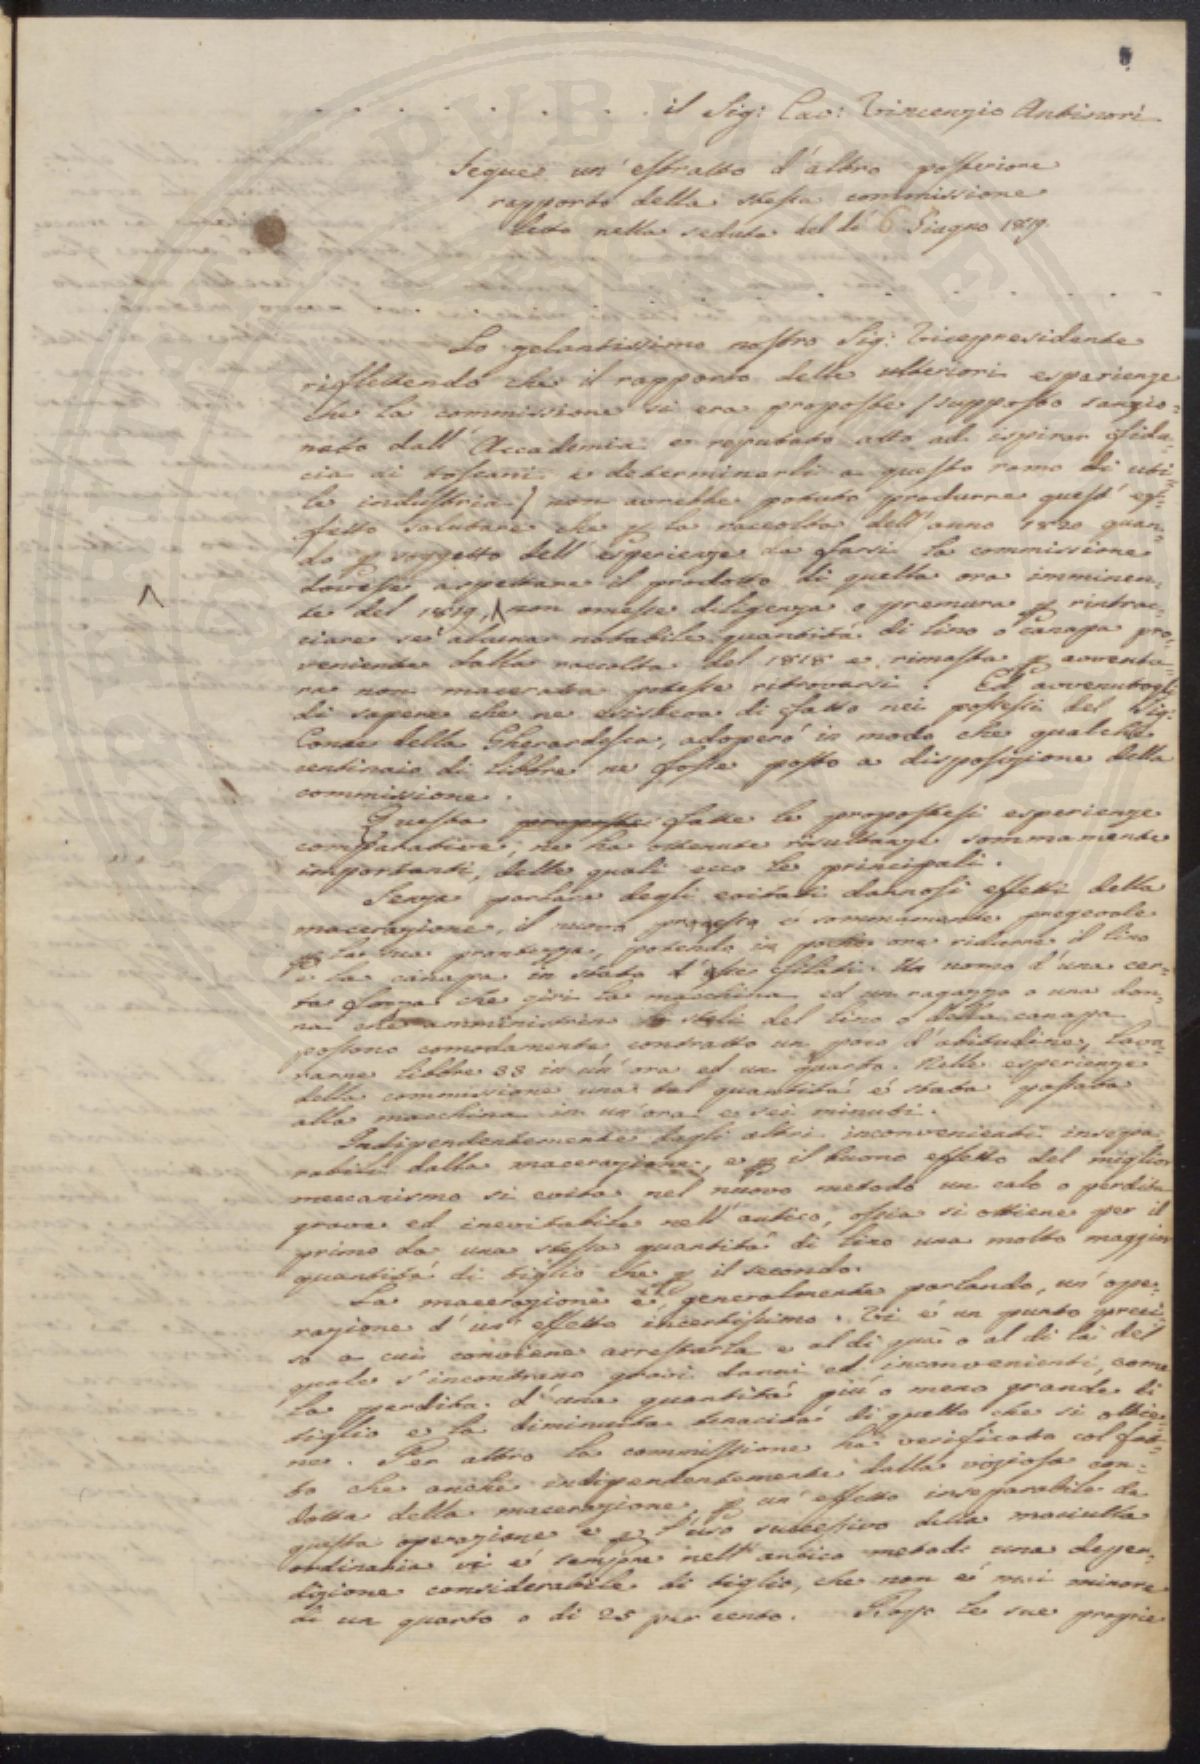 . . . . . . . . . il Sig: Cav: Vincenzio Antinori.
Segue un' estratto d'altro posteriore
rapporto della stessa commissione
letto nella seduta del dì 6 Giugno 1819.
. . . . . . . . . . . . . . . . . .
Lo zelantissimo nostro Sig: Vicepresidente
riflettendo che il rapporto delle ulteriori esperienze
che la commissione si era proposte (supposto sanzio-
nato dall' Accademia e reputato atto ad ispirar fidu-
cia ai toscani e determinarli a questo ramo di uti-
le industria) non avrebbe potuto produrre quest' ef-
fetto salutare che p la raccolta dell' anno 1820 quan-
do p soggetto dell' esperienze da farsi la commissione
dovesse aspettare il prodotto di quella ora imminen-
te del 1819, non omesse diligenza o premura p rintrac-
ciare se alcuna notabile quantità di lino o canapa pro-
veniente dalla raccolta del 1818 e rimasta p avventu-
ra non macerata potesse ritrovarsi. Ed avvenutogli
di sapere che ne esisteva di fatto nei possessi del Sig:
Conte della Gherardesca, adoperò in modo che qualche
centinaio di libbre ne fosse posto a disposizione della
commissione.
Questa proposte fatte le propostesi esperienze
comparative, ne ha ottenute resultanze sommamente
importanti, delle quali ecco le principali.
Senza parlare degli evitati dannosi effetti della
macerazione, il nuovo processo è sommamente pregevole
p la sua prontezza, potendo in poche ore ridurre il lino
e la canapa in stato d'esser filati. Un uomo d'una cer-
ta forza che giri la macchina ed un ragazzo o una don-
na che amministrino gli steli del lino o della canapa
possono comodamente contratto un poco d'abitudine, lavo-
rarne libbre 38 in un' ora ed un quarto. Nelle esperienze
della commissione una tal quantità è stata passata
alla macchina in un' ora e sei minuti.
Indipendentemente dagli altri inconvenienti insepa-
rabili dalla macerazione, e p il buono effetto del miglior
meccanismo si evita nel nuovo metodo un calo o perdita
grave ed inevitabile nell' antico, ossia si ottiene per il
primo da una stessa quantità di lino una molto maggior
quantità di tiglio che p il secondo.
La macerazione è, generalmente parlando, un' ope-
razione d' un' effetto incertissimo. Vi è un punto preci-
so a cui conviene arrestarla e al di quà o al di là del
quale s' incontrano gravi danni ed inconvenienti, come
la perdita d'una quantità più o meno grande di
tiglio e la diminuita tenacità di quello che si ottie-
ne. Per altro la commissione ha verificato col fat-
to che anche indipendentemente dalla viziosa con-
dotta della macerazione p un' effetto inseparabile da
questa operazione e p l'uso successivo della maciulla
ordinaria vi è sempre nell' antico metodo una deper-
dizione considerabile di tiglio, che non è mai minore
di un quarto o di 25 per cento. le sue proprie